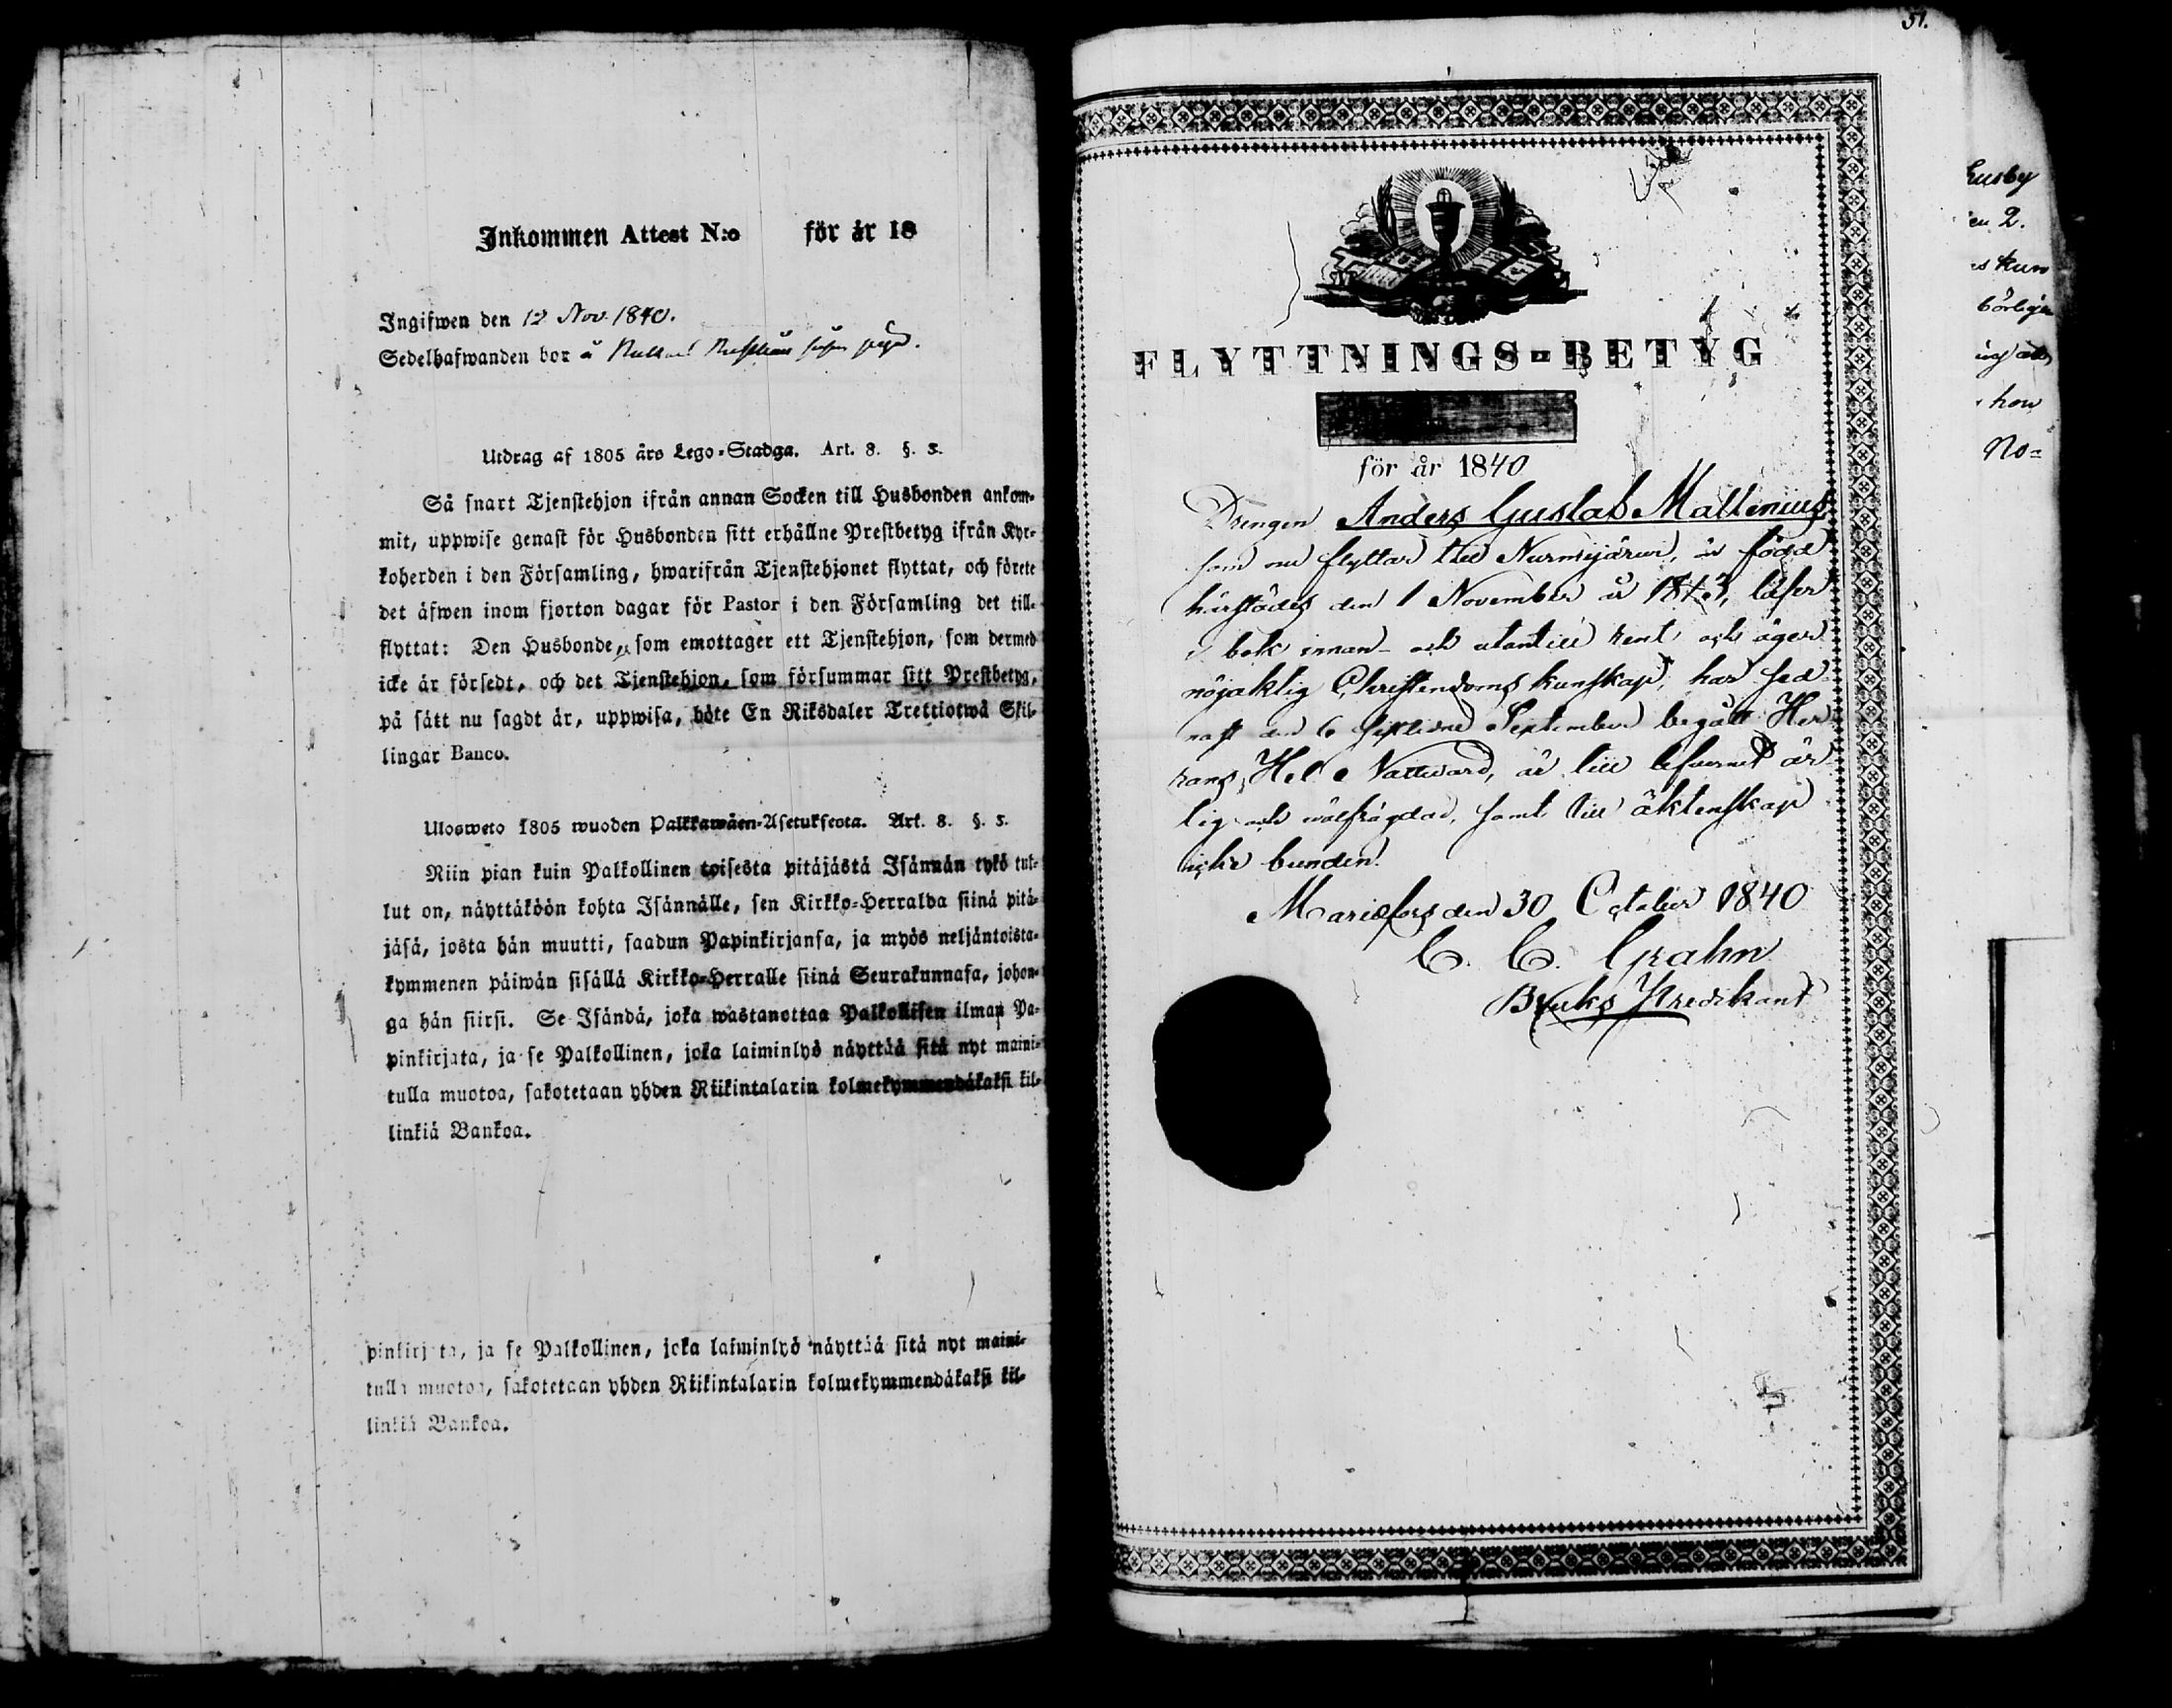 Inkommen Attest N:o för år 18
Ingifwen den 12 Nov. 1840.
Sedelhafwanden bor å
Utdrag af 1805 års Lego-Stadga. Art. 8. §. 5.
Så snart Tjenstehjon ifrån annan Socken till Husbonden ankom-
mit, uppwise genast för Husbonden sitt erhållne Prestbetyg ifrån Kyr-
koherden i den Församling, hwarifrån Tjenstehjonet flyttat, och förete
det äfwen inom fjorton dagar för Pastor i den Församling det till-
flyttat: Den Husbonde, som emottager ett Tjenstehjon, som dermed
icke är försedt, och det Tjenstehjon, som försummar sitt Prestbetyg,
på sätt nu sagdt är, uppwisa, böte En Riksdaler Trettiotwå Skil-
lingar Banco.
Ulosweto 1805 wuoden Palkkawäen-Asetuksesta. Art. 8. §. 5.
Niin pian kuin Palkollinen toisesta pitäjästä Isännän tykö tul-
lut on, näyttäköön kohta Isännälle, sen Kirkko-Herralda siinä pitä-
jäsä, josta hän muutti, saadun Papinkirjansa, ja myös neljäntoista-
kymmenen päiwän sisällä Kirkko-Herralle siinä Seurakunnasa, johon-
ga hän siirsi. Se Isändä, joka wastanottaa Palkollisen ilman Pa-
pinkirjata, ja se Palkollinen, joka laiminlyö näyttää sitä nyt maini-
tulla muotoa, sakotetaan yhden Riikintalarin kolmekymmendäkaksi kil-
linkiä Bankoa.
pinkirjata, ja se Palkollinen, joka laiminlyö näyttää sitä nyt maini-
tulla muotoa, sakotetaan yhden Riikintalarin kolmekymmendäkaksi kil-
linkiä Bankoa.
51.
FLYTTNINGS-BETYG
för år 1840
Drengen Anders Gustaf Mallenius
som nu flyttar till Nurmijärvi, är född
härstädes den 1 November år 1823, läser
i bok innan- och utantill rent och äger
nöjaktig Christendoms kunskap, har sed-
nast den 6 sistledne September begått Her-
rans Hel. Nattvard, är till lefvernet är-
lig och wälfrägdad, samt till äktenskap
icke bunden.
Mariefors den 30 October 1840
C. C. Grahn
Bruks Predikant
husby
en 2.
s kun
börlige
ing
hon
No=